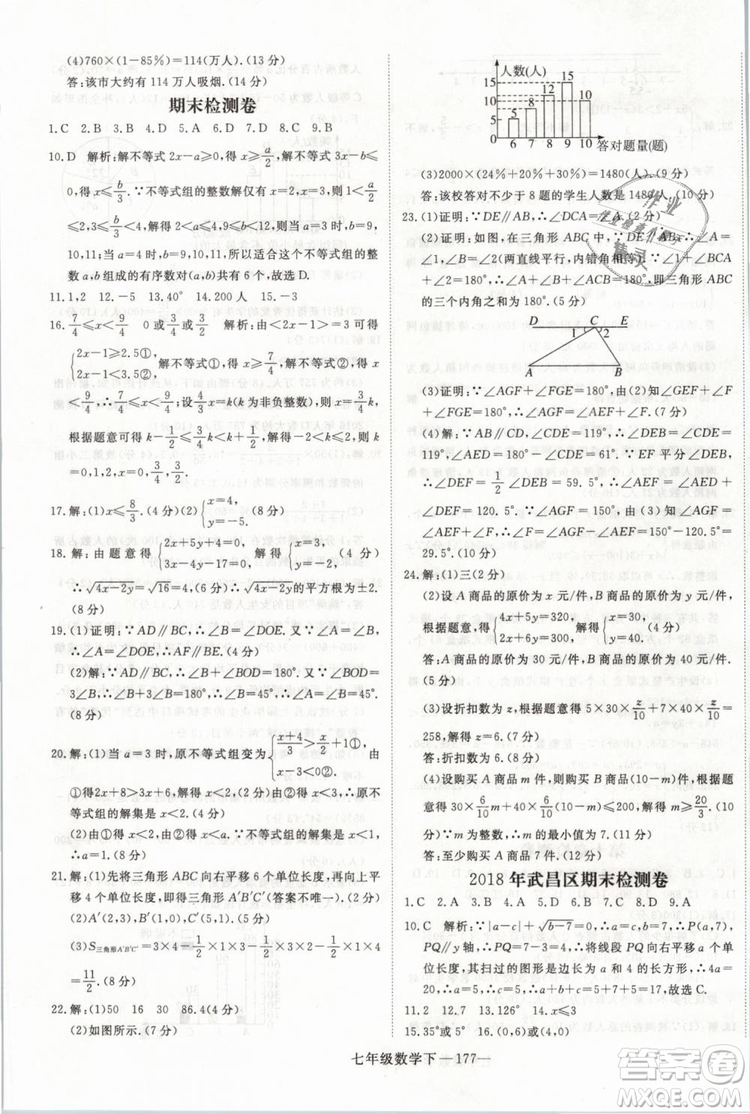 (4)760×(1−85%)=114(万人).(13 分)
答:该市大约有 114 万人吸烟.(14 分)
期末检测卷
1.C 2.B 3.B 4.D 5.A 6.D 7.C 8.C 9.B
10.D 解析:解不等式 2x−a⩾0,得 x⩾a/2,解不等式 3x−b
⩽0,得 x⩽b/3.∵不等式组的整数解仅有 x=2,x=3,∴1<a/2
⩽2,3⩽b/3<4,解得 2<a⩽4,9⩽b<12,∴a=3,4,b=9,
10,11:当 a=3 时,b=9,10,11;当 a=4 时,b=9,10,11.∴适合这个不等式组的整
数 a,b 组成的有序数对(a,b)共有 6 个,故选 D.
11.1,2 12.−5 13.40° 14.200 人 15.−3
16.7/4⩽x<9/4 0或3/4或3/2 解析:依题意<2x−1>=3 可得
{2x−1⩾2.5① 2x−1<3.5②,解不等式①得 x⩾7/4,解不等式②得 x
<9/4,∴7/4⩽x<9/4;设4/3x=k(k 为非负整数),则 x=3/4k.
根据题意可得 k−1/2⩽3/4k<k+1/2,即−2<k⩽2,∴k=0,1,2,∴x
=0,3/4,3/2.
17.解:(1)x⩽8/3.(4 分)(2){x=4, y=−5.(8 分)
18.解:由题意得{2x+5y=4, 3x−4y=−17,解得{x=−3, y=2.(4 分)
∴√(4x−2y)=√(−16),没有平方根.∴√(4x−2y)的平方根为±2.
(8 分)
19.(1)证明:∵AD∥BC,∴∠B=∠DOE.又∵∠A=∠B,
∴∠A=∠DOE,∴AF∥BE.(4 分)
(2)解:∵AD∥BC,∴∠B+∠BOD=180°.又∵∠BOD=
3∠B,∴4∠B=180°,∴∠B=45°,∴∠A=∠B=45°.
(8 分)
20.解:(1)当 a=3 时,原不等式组变为{(x+4)/3>x/2+1① x−3<0②,由
①得2x+8>3x+6,解得 x<2,由②得 x<3,∴原不
等式组的解集是 x<2.(4 分)
(2)由①得 x<2,由②得 x<a,∵不等式组的解集是 x<1,
∴a=1.(8 分)
21.解:(1)先将三角形 ABC 向右平移 5 个单位长度,再向下平
移 2 个单位长度得到三角形 A′B′C′(答案不唯一).(2 分)
(2)A′(2,3),B′(1,0),C′(5,1).(5 分)
(3)S三角形A′B′C′=3×4−1/2×3×1−1/2×4×1−1/2×3×2=
11/2.(8 分)
22.解:(1)50 16 30 (4 分)
(2)如图所示.(7 分)
人数(人)
15
12
10
8
5
15
10
5
0
6 7 8 9 10
答对题量(题)
(3)2000×(24%+20%+30%)=1480(人).
答:该校答对不少于 8 题的学生人数是 1480 人.(10 分)
23.(1)证明:∵DE∥AB,∴∠DCA=∠A.(3 分)
(2)解:如图,在三角形 ABC 中,∵DE∥AB,∴∠DCA=∠A,
∠ECB=∠B(两直线平行,内错角相等).∵∠A,∠B,∠ACB 是三角形 ABC
的三个内角和为 180°.(6 分)
D C E
1 2
A B
(3)证明:∵∠AGF+∠FGE=180°,由(2)知∠GEF+
∠F+∠FGE=180°,∴∠AGF=∠GEF+∠F.(8 分)
(4)解:∵AB∥CD,∠CDE=119°,∴∠DEB=∠CDE=
119°,∠AED=180°−∠CDE=61°.∵EF 平分∠DEB,
∴∠DEF=1/2∠DEB=59.5°,∴∠AEF=∠AED+
∠DEF=120.5°.∵∠AGF=150°,由(3)知∠AGF=
∠AEF+∠F,∴∠F=∠AGF−∠AEF=150°−120.5°=
29.5°.(10 分)
24.解:(1)三(2 分)
(2)设 A 商品的原价为 x 元/件,B 商品的原价为 y 元/件,
根据题意,得{4x+5y=320, 2x+6y=300,解得{x=30, y=40.
答:A 商品的原价为 30 元/件,B 商品的原价为 40 元/件.
(6 分)
(3)设折扣数为 z,根据题意得 5×30×z/10+7×40×z/10=
258,解得 z=6.
答:折扣数为 6.(9 分)
(4)设购买 A 商品 m 件,则购买 B 商品(10−m)件,根据题意
得 30×6/10m+40×6/10(10−m)⩽200,解得 m⩾20/3.(11
分)∵m 为整数,∴m 的最小值为 7.
答:至少购买 A 商品 7 件.(12 分)
2018 年武昌区期末检测卷
1.C 2.A 3.D 4.B 5.C 6.D 7.B 8.D 9.A
10.C 解析:∵|a−c|+√(b−7)=0,∴a=c,b=7,∴P(a,7),
PQ∥y 轴,∴PQ=7−3=4,∴将线段 PQ 向右平移 a 个单位长度,
其扫过的图形是边长为 a 和 4 的矩形,∴4a=24,∴a=6,∴a+b
+c=6+7+6=19,故选 C.
11.2 12.7 13.126° 14.(0,4)或(0,−4)
15.35° 或 75° 16.0⩽m<1
七年级数学下—177—
作业
检查小
精灵
作业精灵